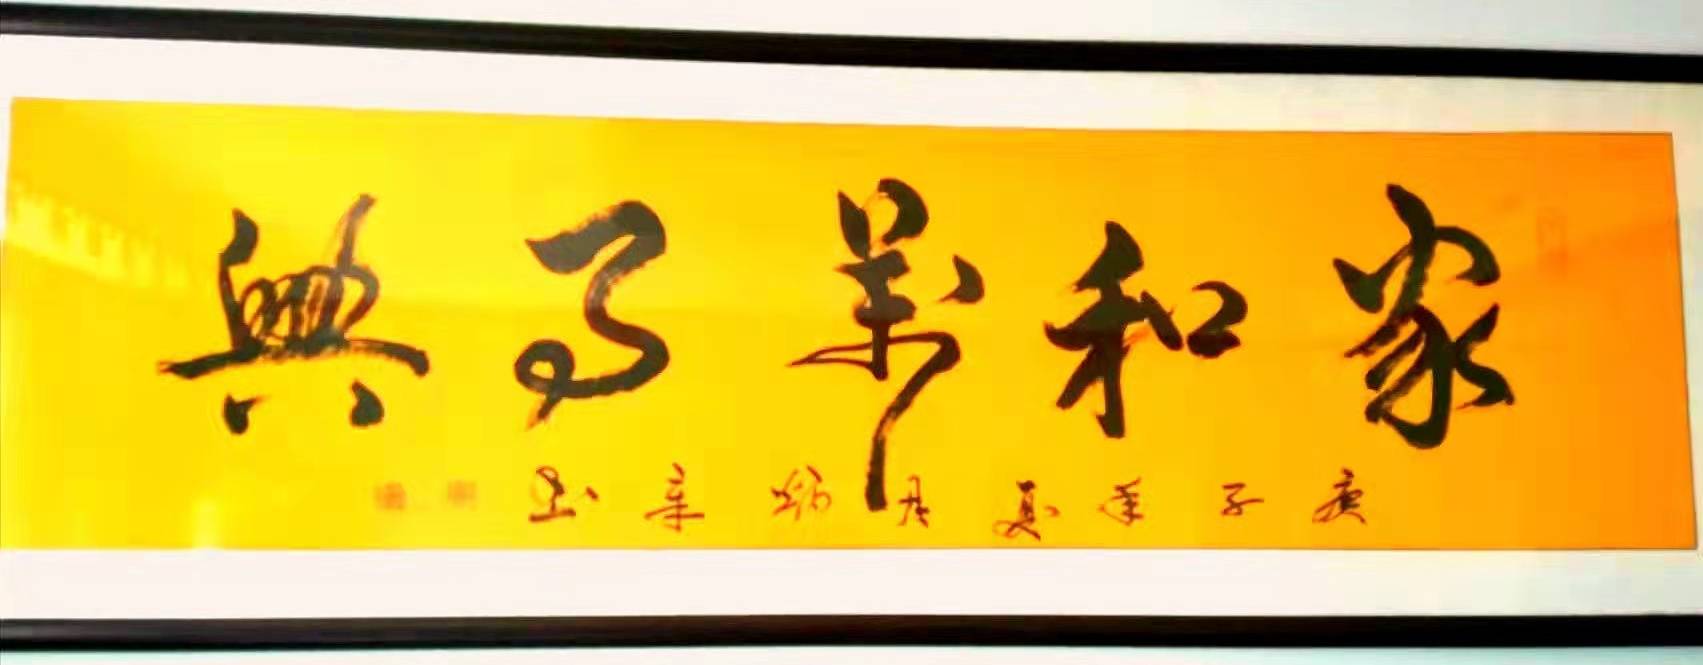 家和萬事興
庚子年夏月炳辛書